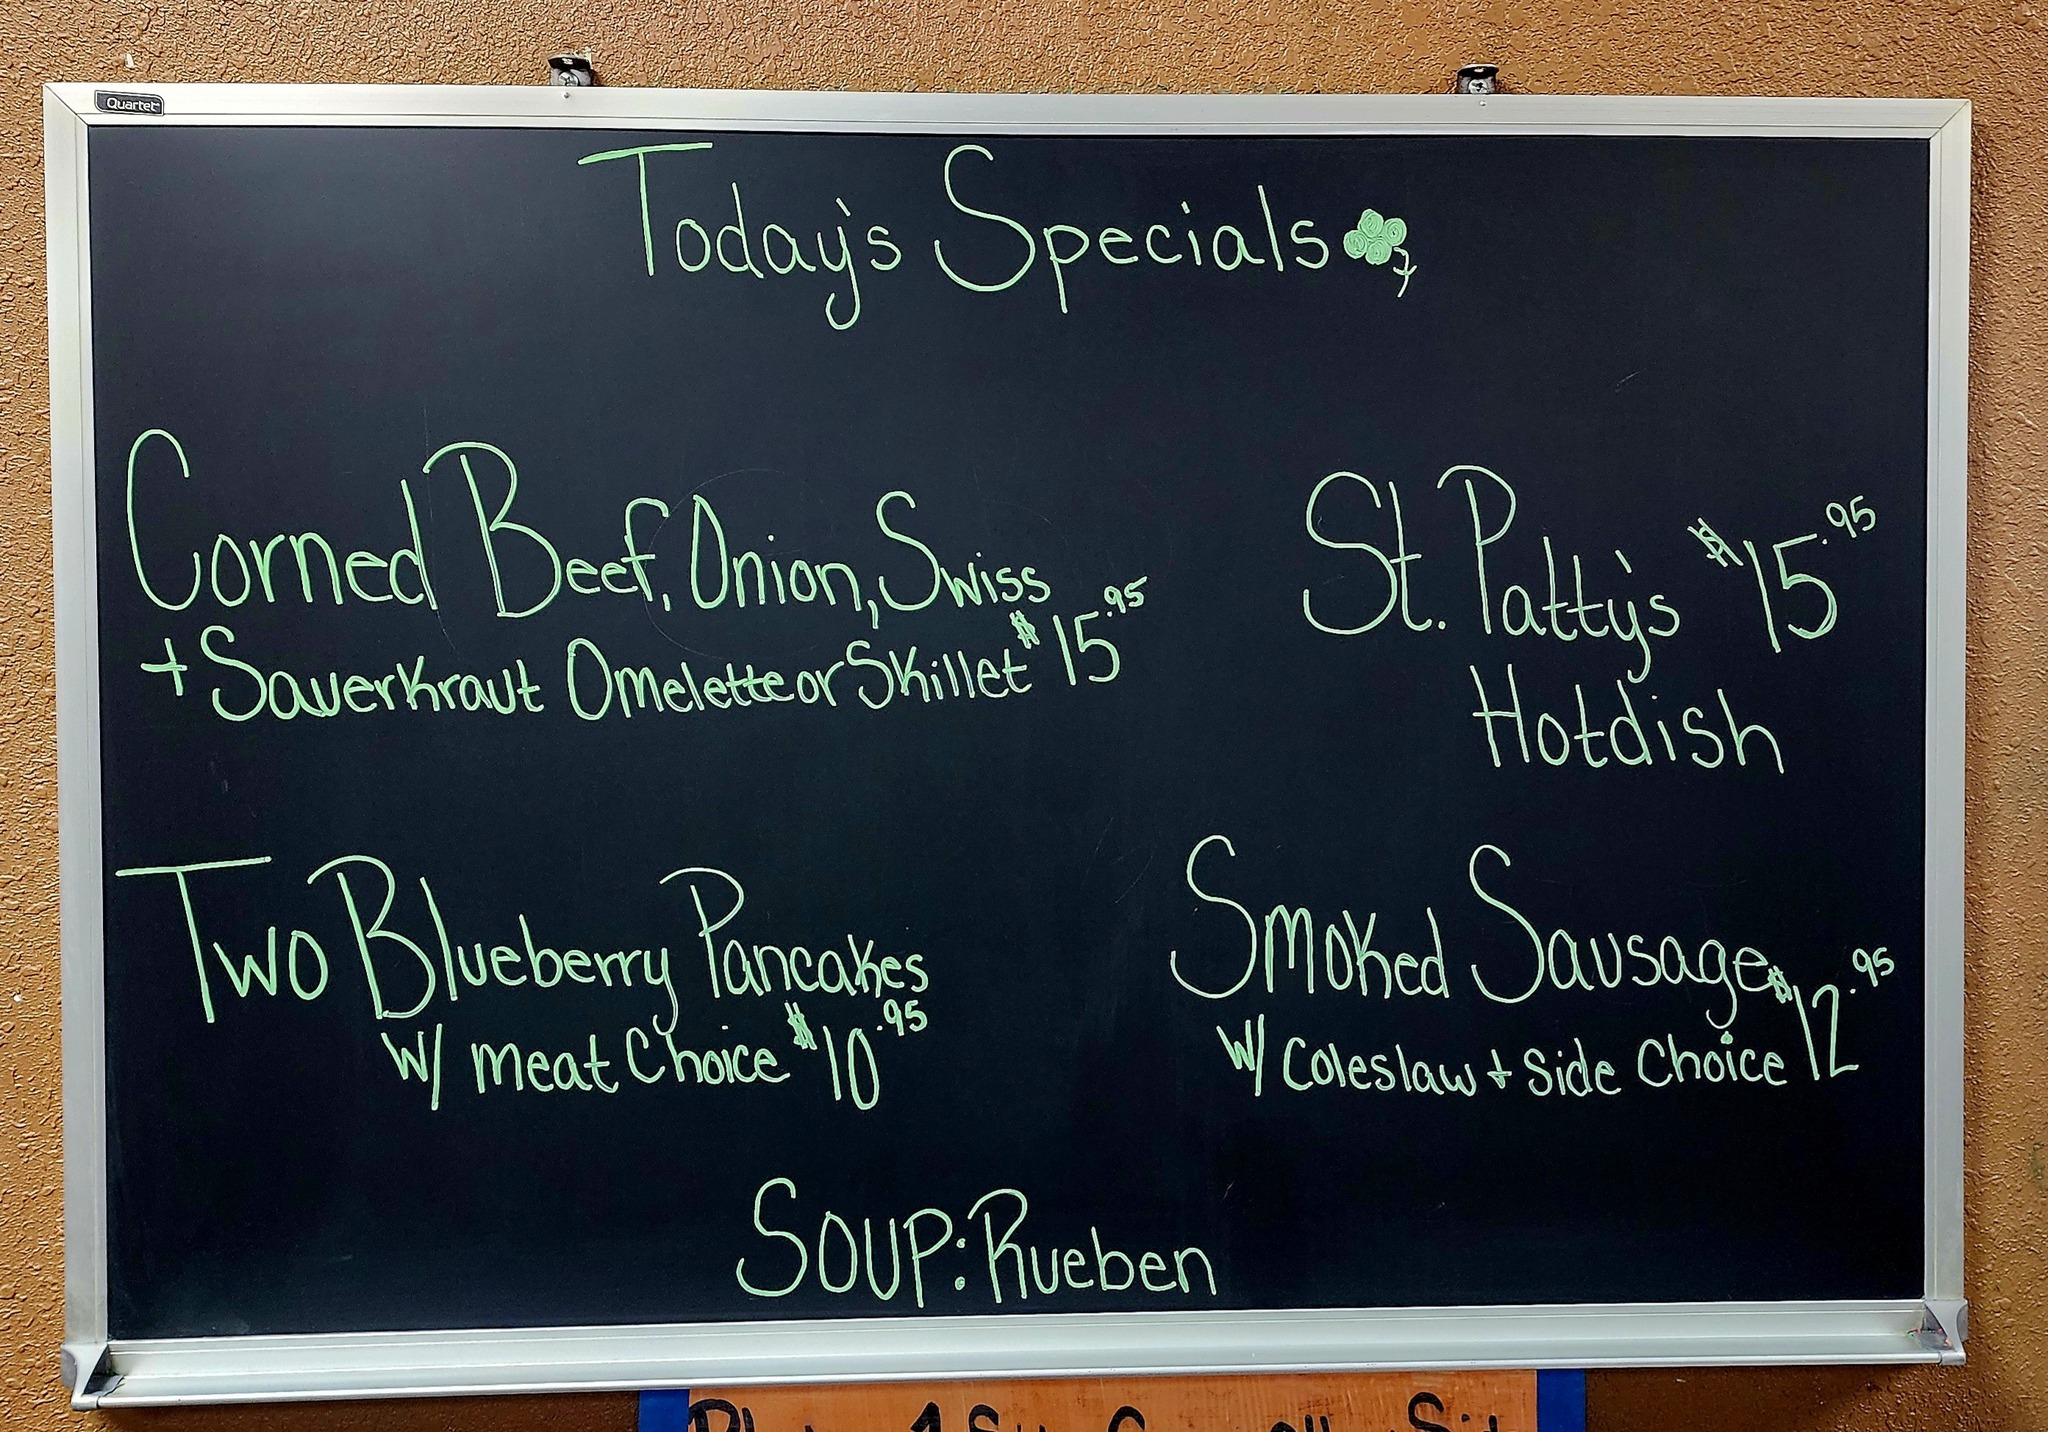 Quartet
Today's Specials
Corned Beef, Onion, Swiss
+ Sauerkraut Omelette or Skillet $15.95
St. Patty's $15.95
Hotdish
Two Blueberry Pancakes
w/ meat Choice $10.95
Smoked Sausage
w/ Coleslaw + Side Choice $12.95
SOUP: Rueben